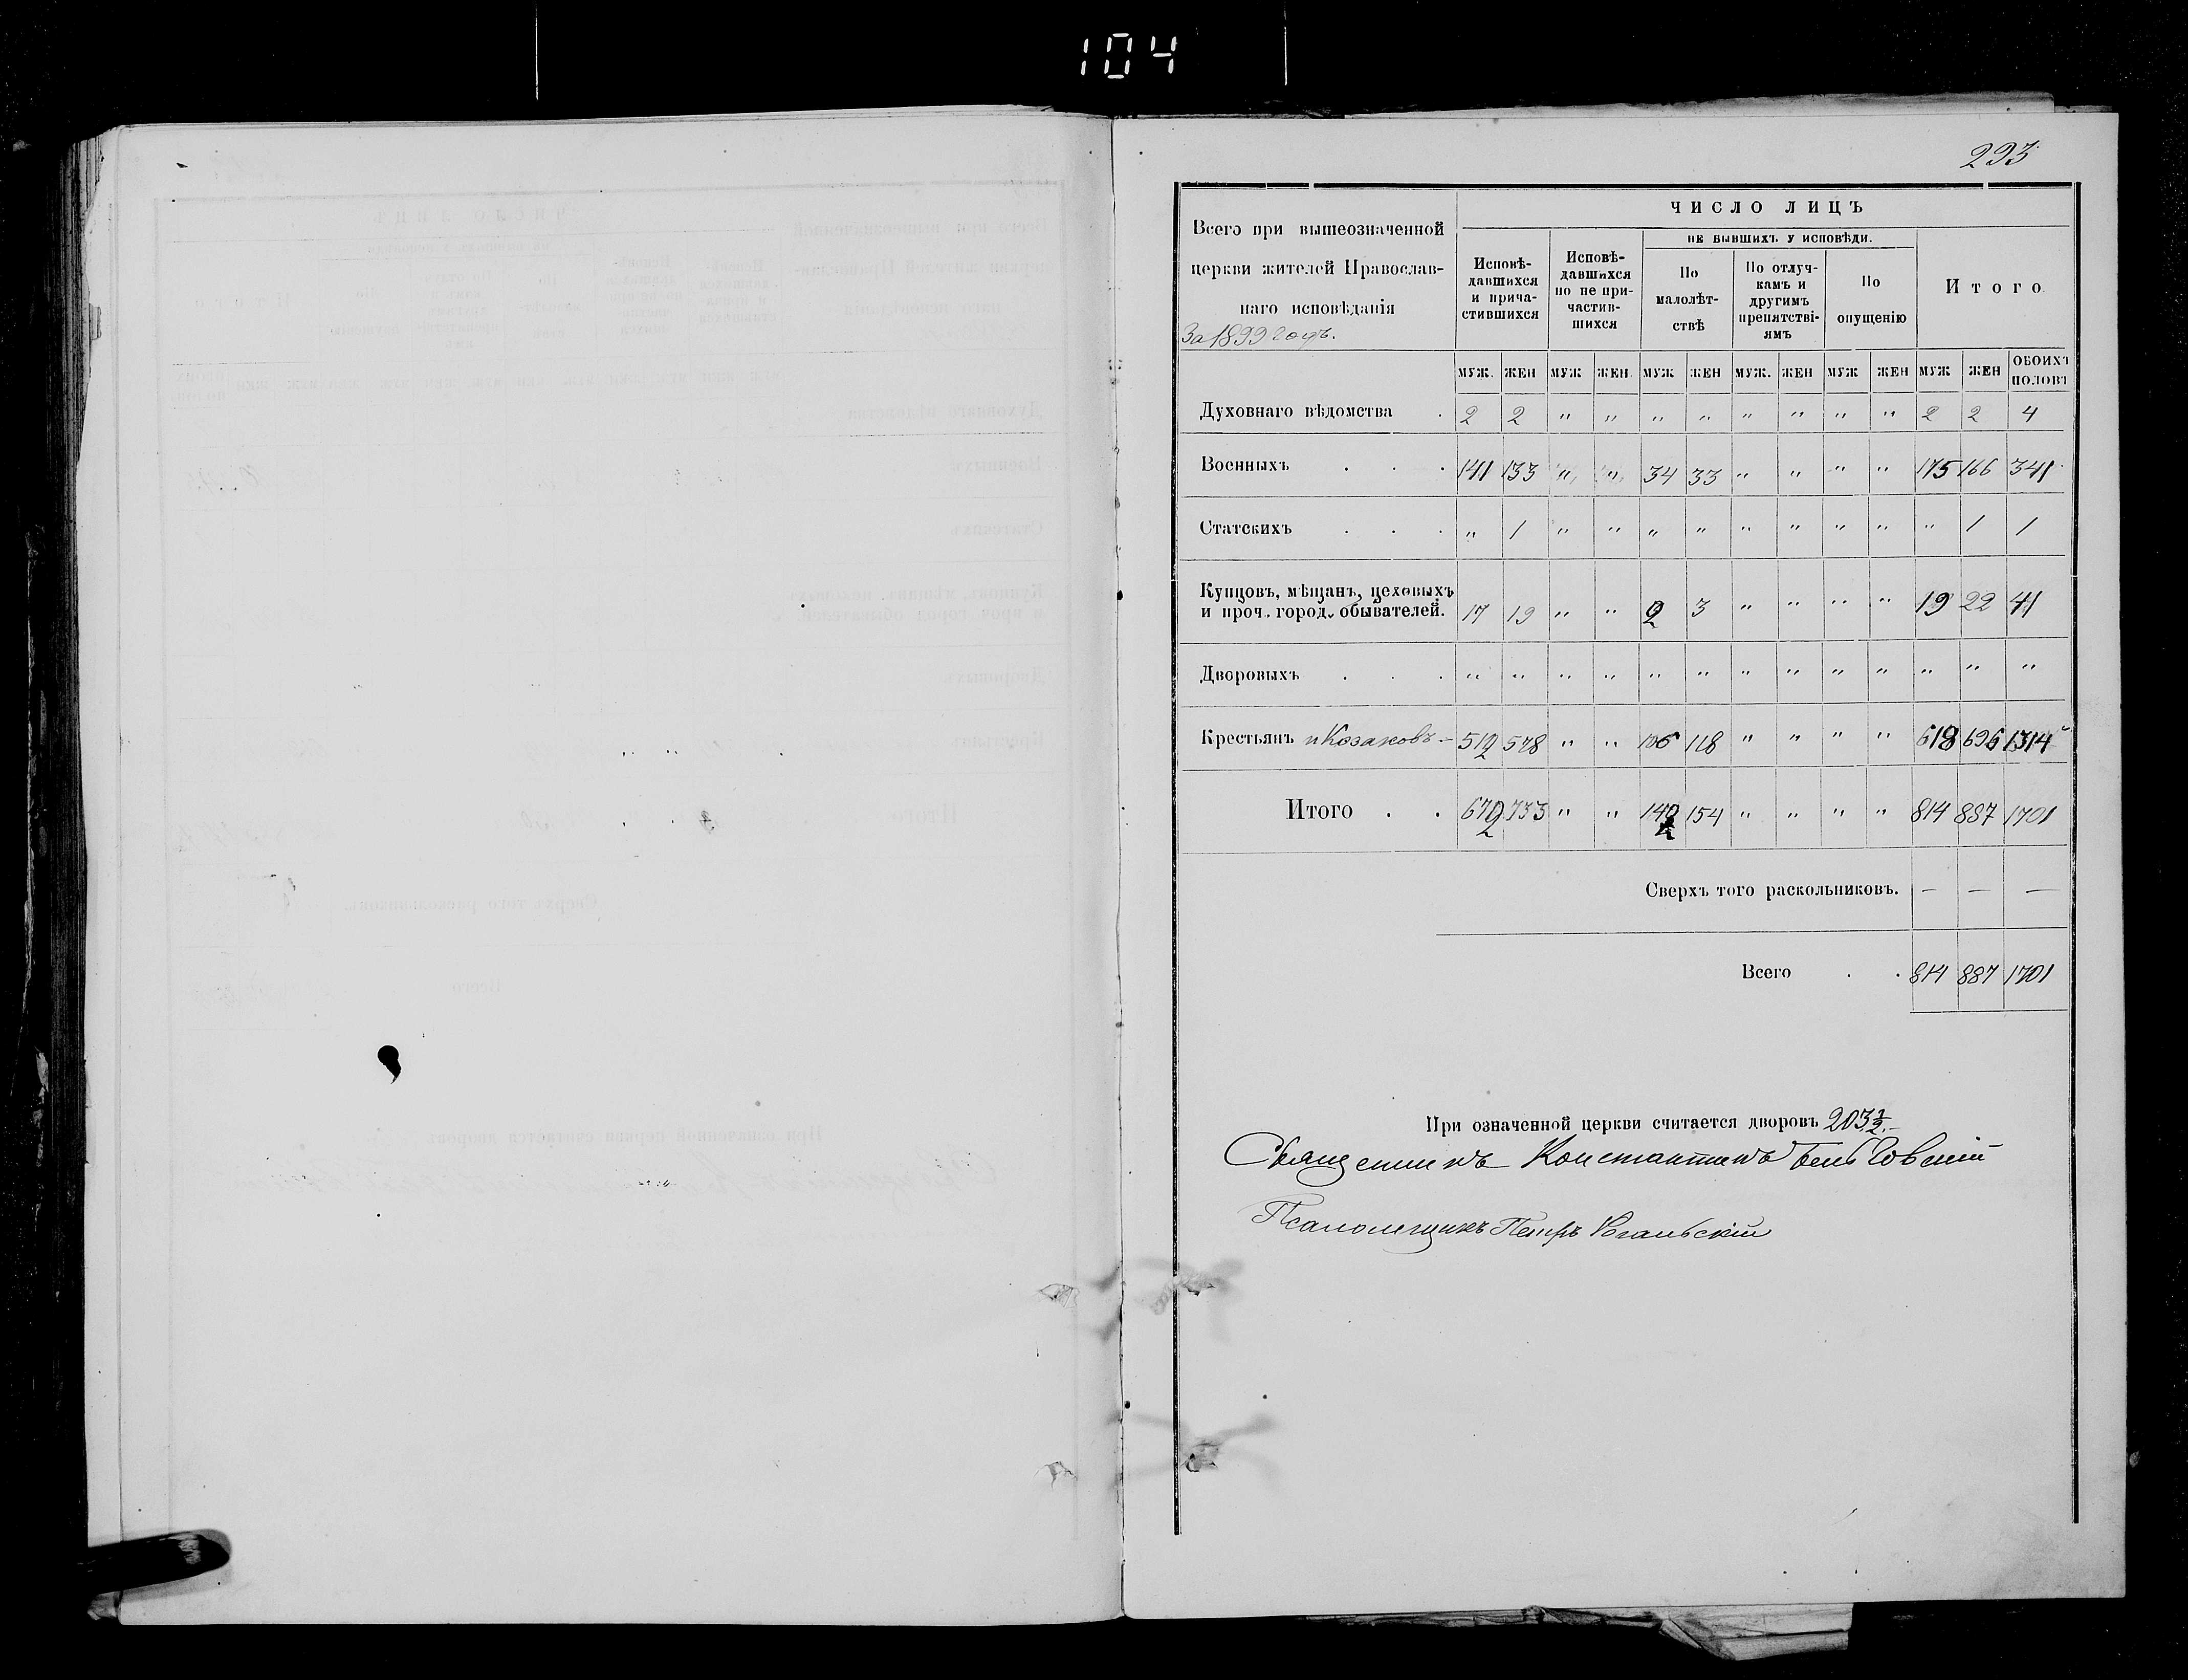 104
293
ЧИСЛО ЛИЦЪ
Всего при вышеозначенной
церкви жителей Православ-
наго исповѣданія
За 1899 годъ.
Исповѣ-
давшихся
и прича-
стившихся
Исповѣ-
давшихся
но не при-
частив-
шихся
НЕ БЫВШИХЪ У ИСПОВѢДИ.
По
малолѣт-
ствѣ
По отлуч-
камъ и
другимъ
препятстві-
ямъ
По
опущенію
Итого
МУЖ. ЖЕН МУЖ ЖЕН. МУЖ ЖЕН МУЖ. ЖЕН МУЖ ЖЕН МУЖ ЖЕН ОБОИХЪ ПОЛОВЪ
Духовнаго вѣдомства . 2 2 " " " " " " " " 2 2 4
Военныхъ . . . 141 133 " " 34 33 " " " " 175 166 341
Статскихъ . . . " 1 " " " " " " " " " 1 1
Купцовъ, мѣщанъ, цеховыхъ
и проч. город. обывателей. 17 19 " " 2 3 " " " " 19 22 41
Дворовыхъ . . . " " " " " " " " " " " " "
Крестьянъ и Козаковъ 512 578 " " 106 118 " " " " 618 696 1314
Итого . . 672 733 " " 142 154 " " " " 814 887 1701
Сверхъ того раскольниковъ. — — —
Всего . . 814 887 1701
При означенной церкви считается дворовъ 203
Священникъ Константинъ
Псаломщикъ Петръ